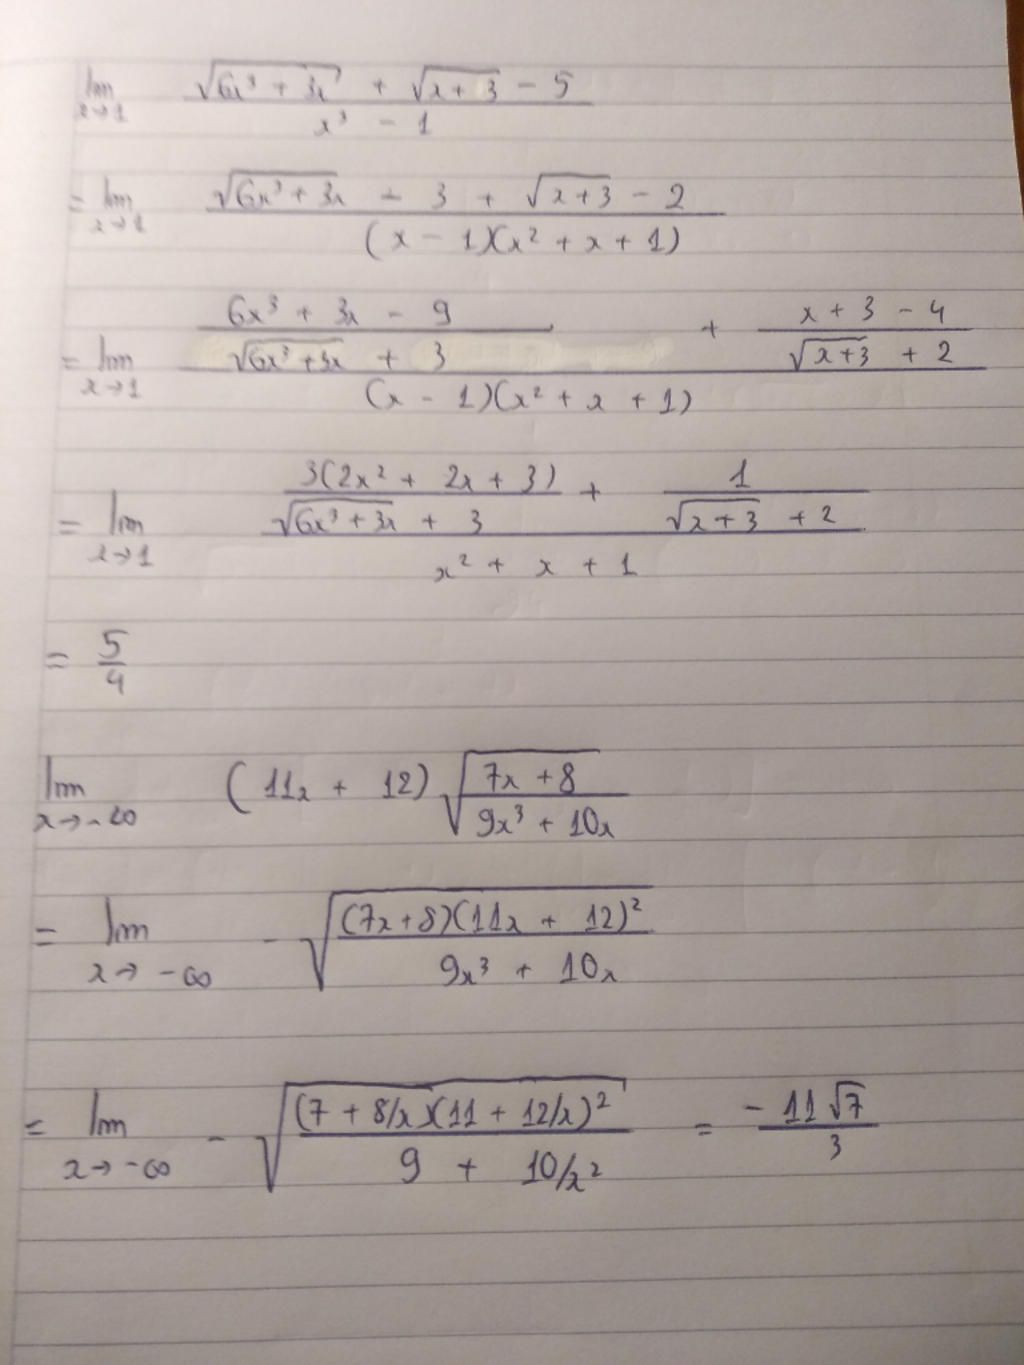 lim x→1 (√(6x³ + 3x) + √(x + 3) − 5) / (x³ − 1)
= lim x→1 (√(6x³ + 3x) − 3 + √(x + 3) − 2) / ((x − 1)(x² + x + 1))
= lim x→1 ((6x³ + 3x − 9) / (√(6x³ + 3x) + 3) + (x + 3 − 4) / (√(x + 3) + 2)) / ((x − 1)(x² + x + 1))
= lim x→1 (3(2x² + 2x + 3) / (√(6x³ + 3x) + 3) + 1 / (√(x + 3) + 2)) / (x² + x + 1)
= 5/4
lim x→−∞ (11x + 12) √((7x + 8) / (9x³ + 10x))
= lim x→−∞ − √((7x + 8)(11x + 12)² / (9x³ + 10x))
= lim x→−∞ − √((7 + 8/x)(11 + 12/x)² / (9 + 10/x²)) = −11√7 / 3